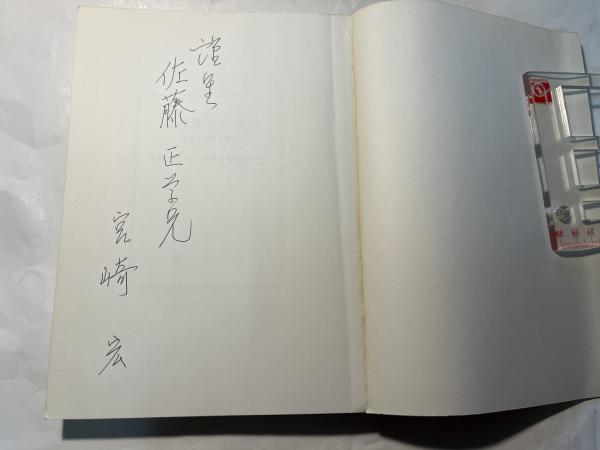 謹呈
佐藤正学兄
宮崎宏